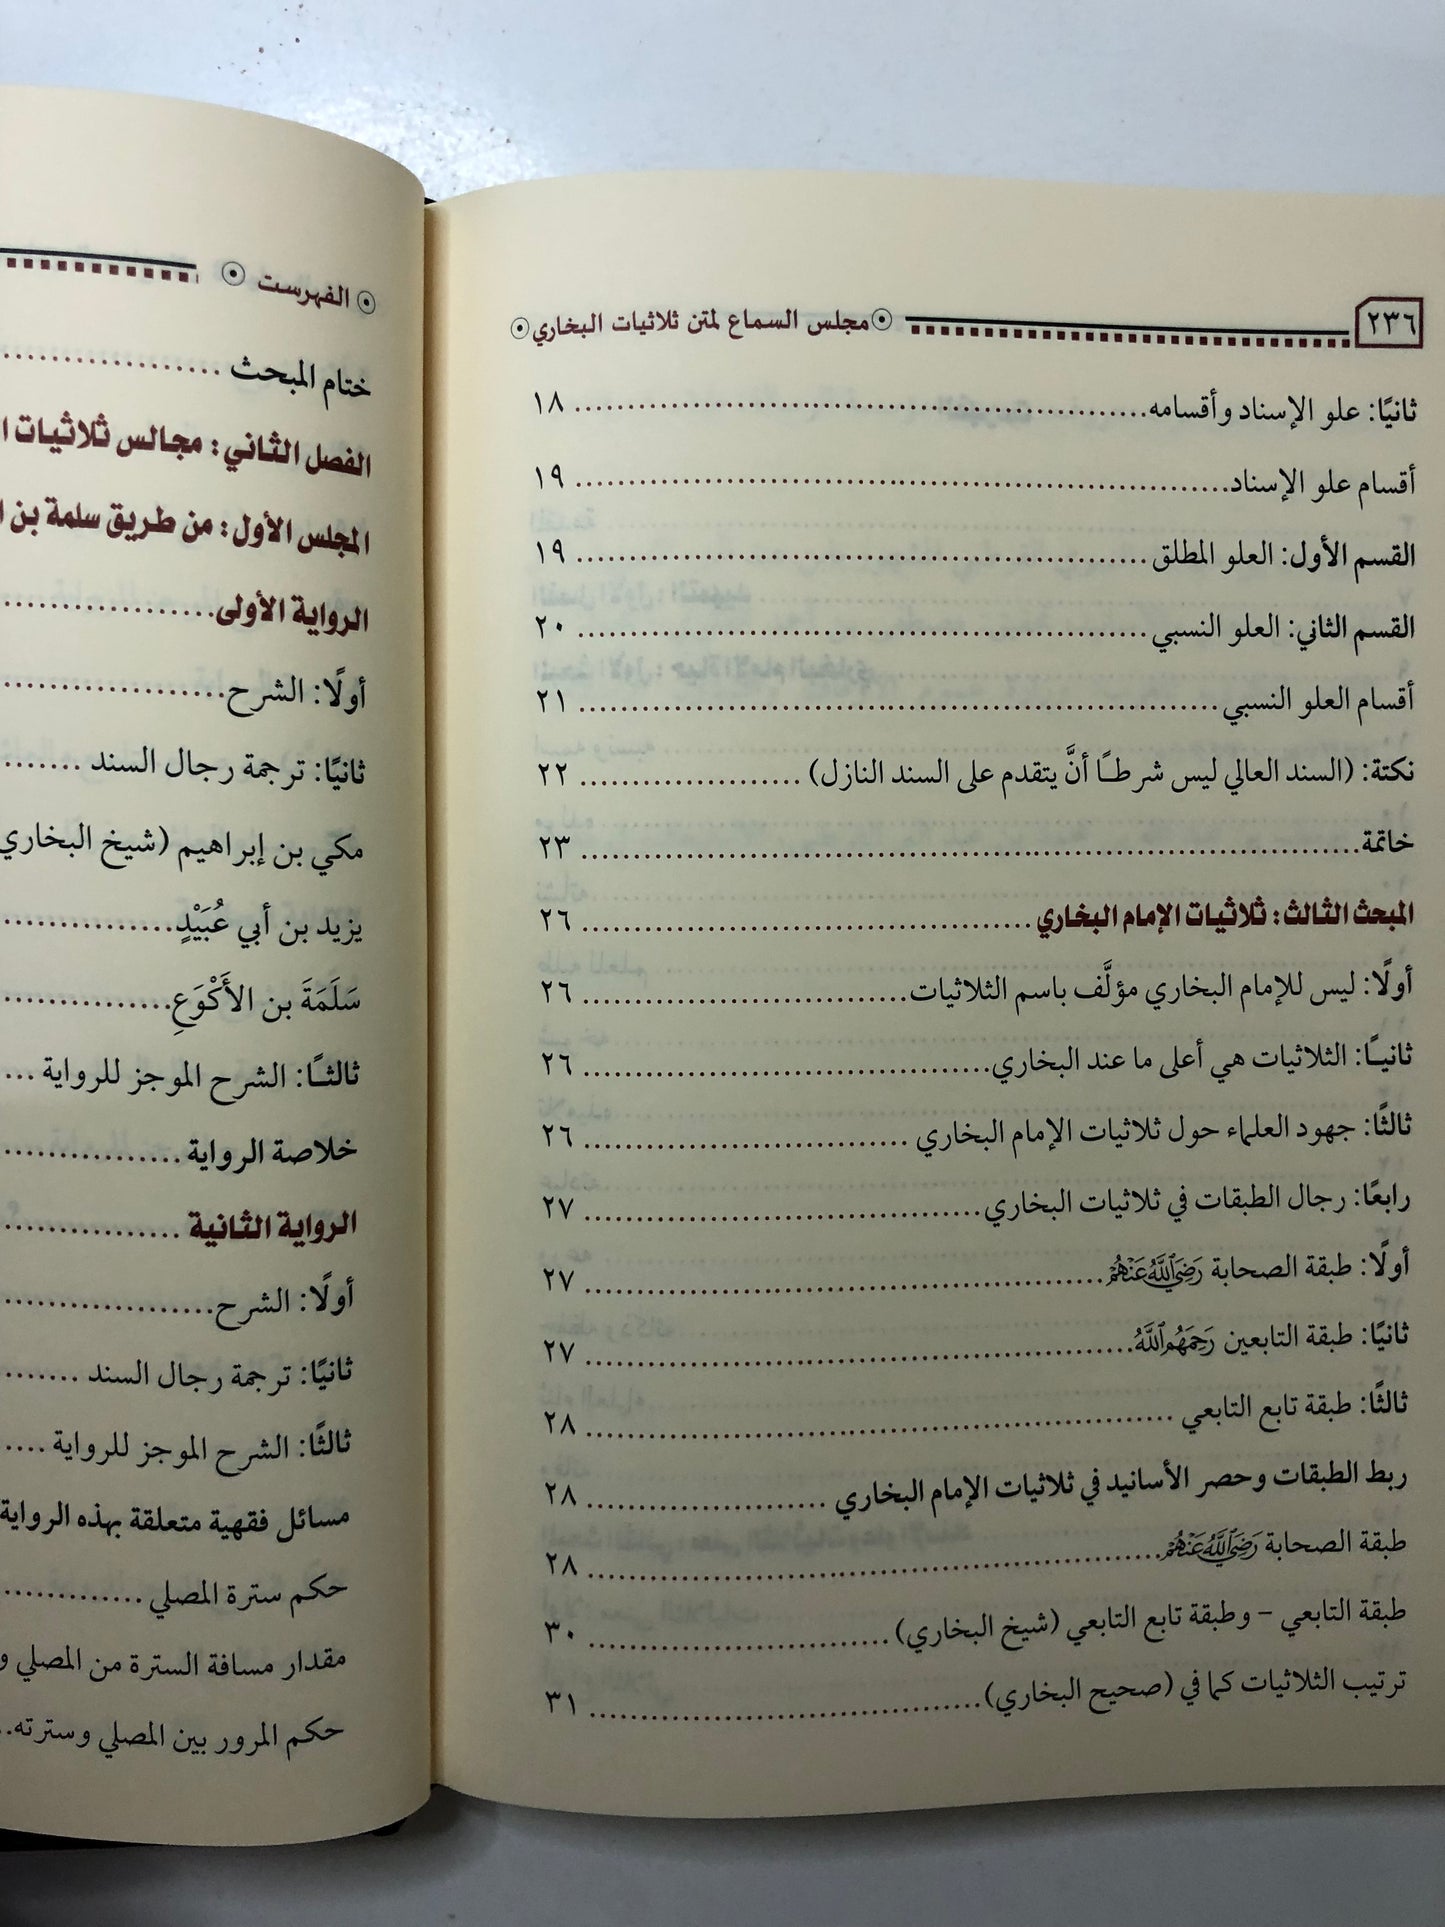 ٢٣٦ مجلس السماع لمتن ثلاثيات البخاري
ثانيًا: علو الإسناد وأقسامه ١٨
أقسام علو الإسناد ١٩
القسم الأول: العلو المطلق ١٩
القسم الثاني: العلو النسبي ٢٠
أقسام العلو النسبي ٢١
نكتة: (السند العالي ليس شرطًا أنَّ يتقدم على السند النازل) ٢٢
خاتمة ٢٣
المبحث الثالث: ثلاثيات الإمام البخاري ٢٦
أولًا: ليس للإمام البخاري مؤلَّف باسم الثلاثيات ٢٦
ثانيًا: الثلاثيات هي أعلى ما عند البخاري ٢٦
ثالثًا: جهود العلماء حول ثلاثيات الإمام البخاري ٢٦
رابعًا: رجال الطبقات في ثلاثيات البخاري ٢٧
أولًا: طبقة الصحابة رَضِيَ ٱللَّهُ عَنْهُمْ ٢٧
ثانيًا: طبقة التابعين رَحِمَهُمُ ٱللَّهُ ٢٧
ثالثًا: طبقة تابع التابعي ٢٨
ربط الطبقات وحصر الأسانيد في ثلاثيات الإمام البخاري ٢٨
طبقة الصحابة رَضِيَ ٱللَّهُ عَنْهُمْ ٢٨
طبقة التابعي – وطبقة تابع التابعي (شيخ البخاري) ٣٠
ترتيب الثلاثيات كما في (صحيح البخاري) ٣١
الفهرست
ختام المبحث
الفصل الثاني: مجالس ثلاثيات
المجلس الأول: من طريق سلمة بن
الرواية الأولى
أولًا: الشرح
ثانيًا: ترجمة رجال السند
مكي بن إبراهيم (شيخ البخاري
يزيد بن أبي عُبَيْدٍ
سَلَمَةَ بن الأَكْوَعِ
ثالثًا: الشرح الموجز للرواية
خلاصة الرواية
الرواية الثانية
أولًا: الشرح
ثانيًا: ترجمة رجال السند
ثالثًا: الشرح الموجز للرواية
مسائل فقهية متعلقة بهذه الرواية
حكم سترة المصلي
مقدار مسافة السترة من المصلي و
حكم المرور بين المصلي وسترته